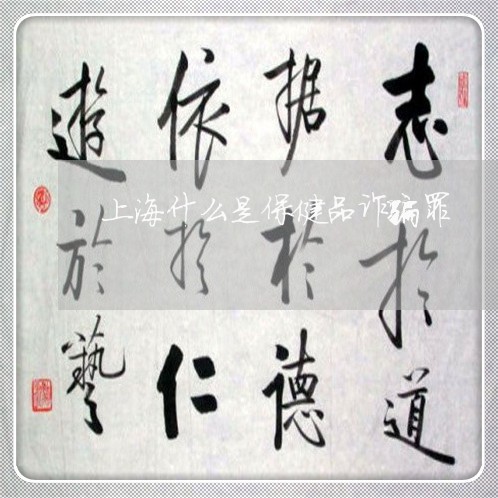 志於道
据於德
依於仁
遊於藝
上海什么是保健品诈骗罪